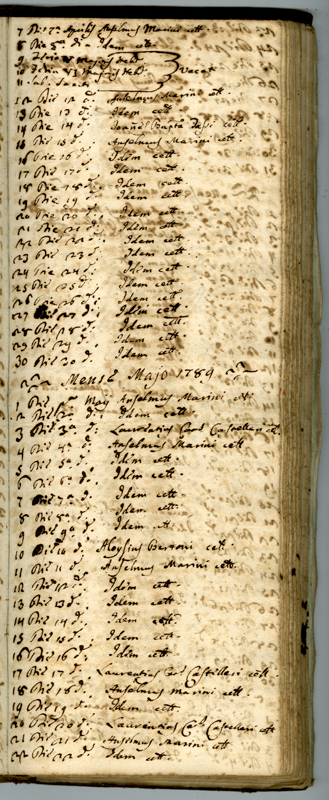 7 Die 7a Aprilis Anselmus Marini cett.
8 Die 8a di Idem cett.
9 Feria V Majoris Hebd.
10 Feria VI Majoris Hebd. Vacat
11 Sab. Sancto
12 Die 12 d. Anselmus Marini cett.
13 Die 13 d. Idem cett.
14 Die 14 d. Joannes Bapta cett.
15 Die 15 d. Anselmus Marini cett.
16 Die 16 d. Idem cett.
17 Die 17 d. Idem cett.
18 Die 18 d. Idem cett.
19 Die 19 Idem cett.
20 Die 20 d. Idem cett.
21 Die 21 d. Idem cett.
22 Die 22 d. Idem cett.
23 Die 23 d. Idem cett.
24 Die 24 d. Idem cett.
25 Die 25 d. Idem cett.
26 Die 26 d. Idem cett.
27 Die 27 d. Idem cett.
28 Die 28 d. Idem cett.
29 Die 29 d. Idem cett.
30 Die 30 d. Idem cett.
Mense Majo 1789
1 Die pa May Anselmus Marini cett.
2 Die 2a di Idem cett.
3 Die 3a d. Laurentius Carl Castelleri cett.
4 Die 4a d. Anselmus Marini cett.
5 Die 5a d. Idem cett.
6 Die 6a d. Idem cett.
7 Die 7a d. Idem cett.
8 Die 8a d. Idem cett.
9 Die 9a d. Idem cett.
10 Die 10 d. Aloysius Bertoni cett.
11 Die 11 d. Anselmus Marini cett.
12 Die 12 d. Idem cett.
13 Die 13 d. Idem cett.
14 Die 14 d. Idem cett.
15 Die 15 d. Idem cett.
16 Die 16 d. Idem cett.
17 Die 17 d. Laurentius Carl Castelleri cett.
18 Die 18 d. Anselmus Marini cett.
19 Die 19 d. Idem cett.
20 Die 20 d. Laurentius Carl Castelleri cett.
21 Die 21 d. Anselmus Marini cett.
22 Die 22 d. Idem cett.